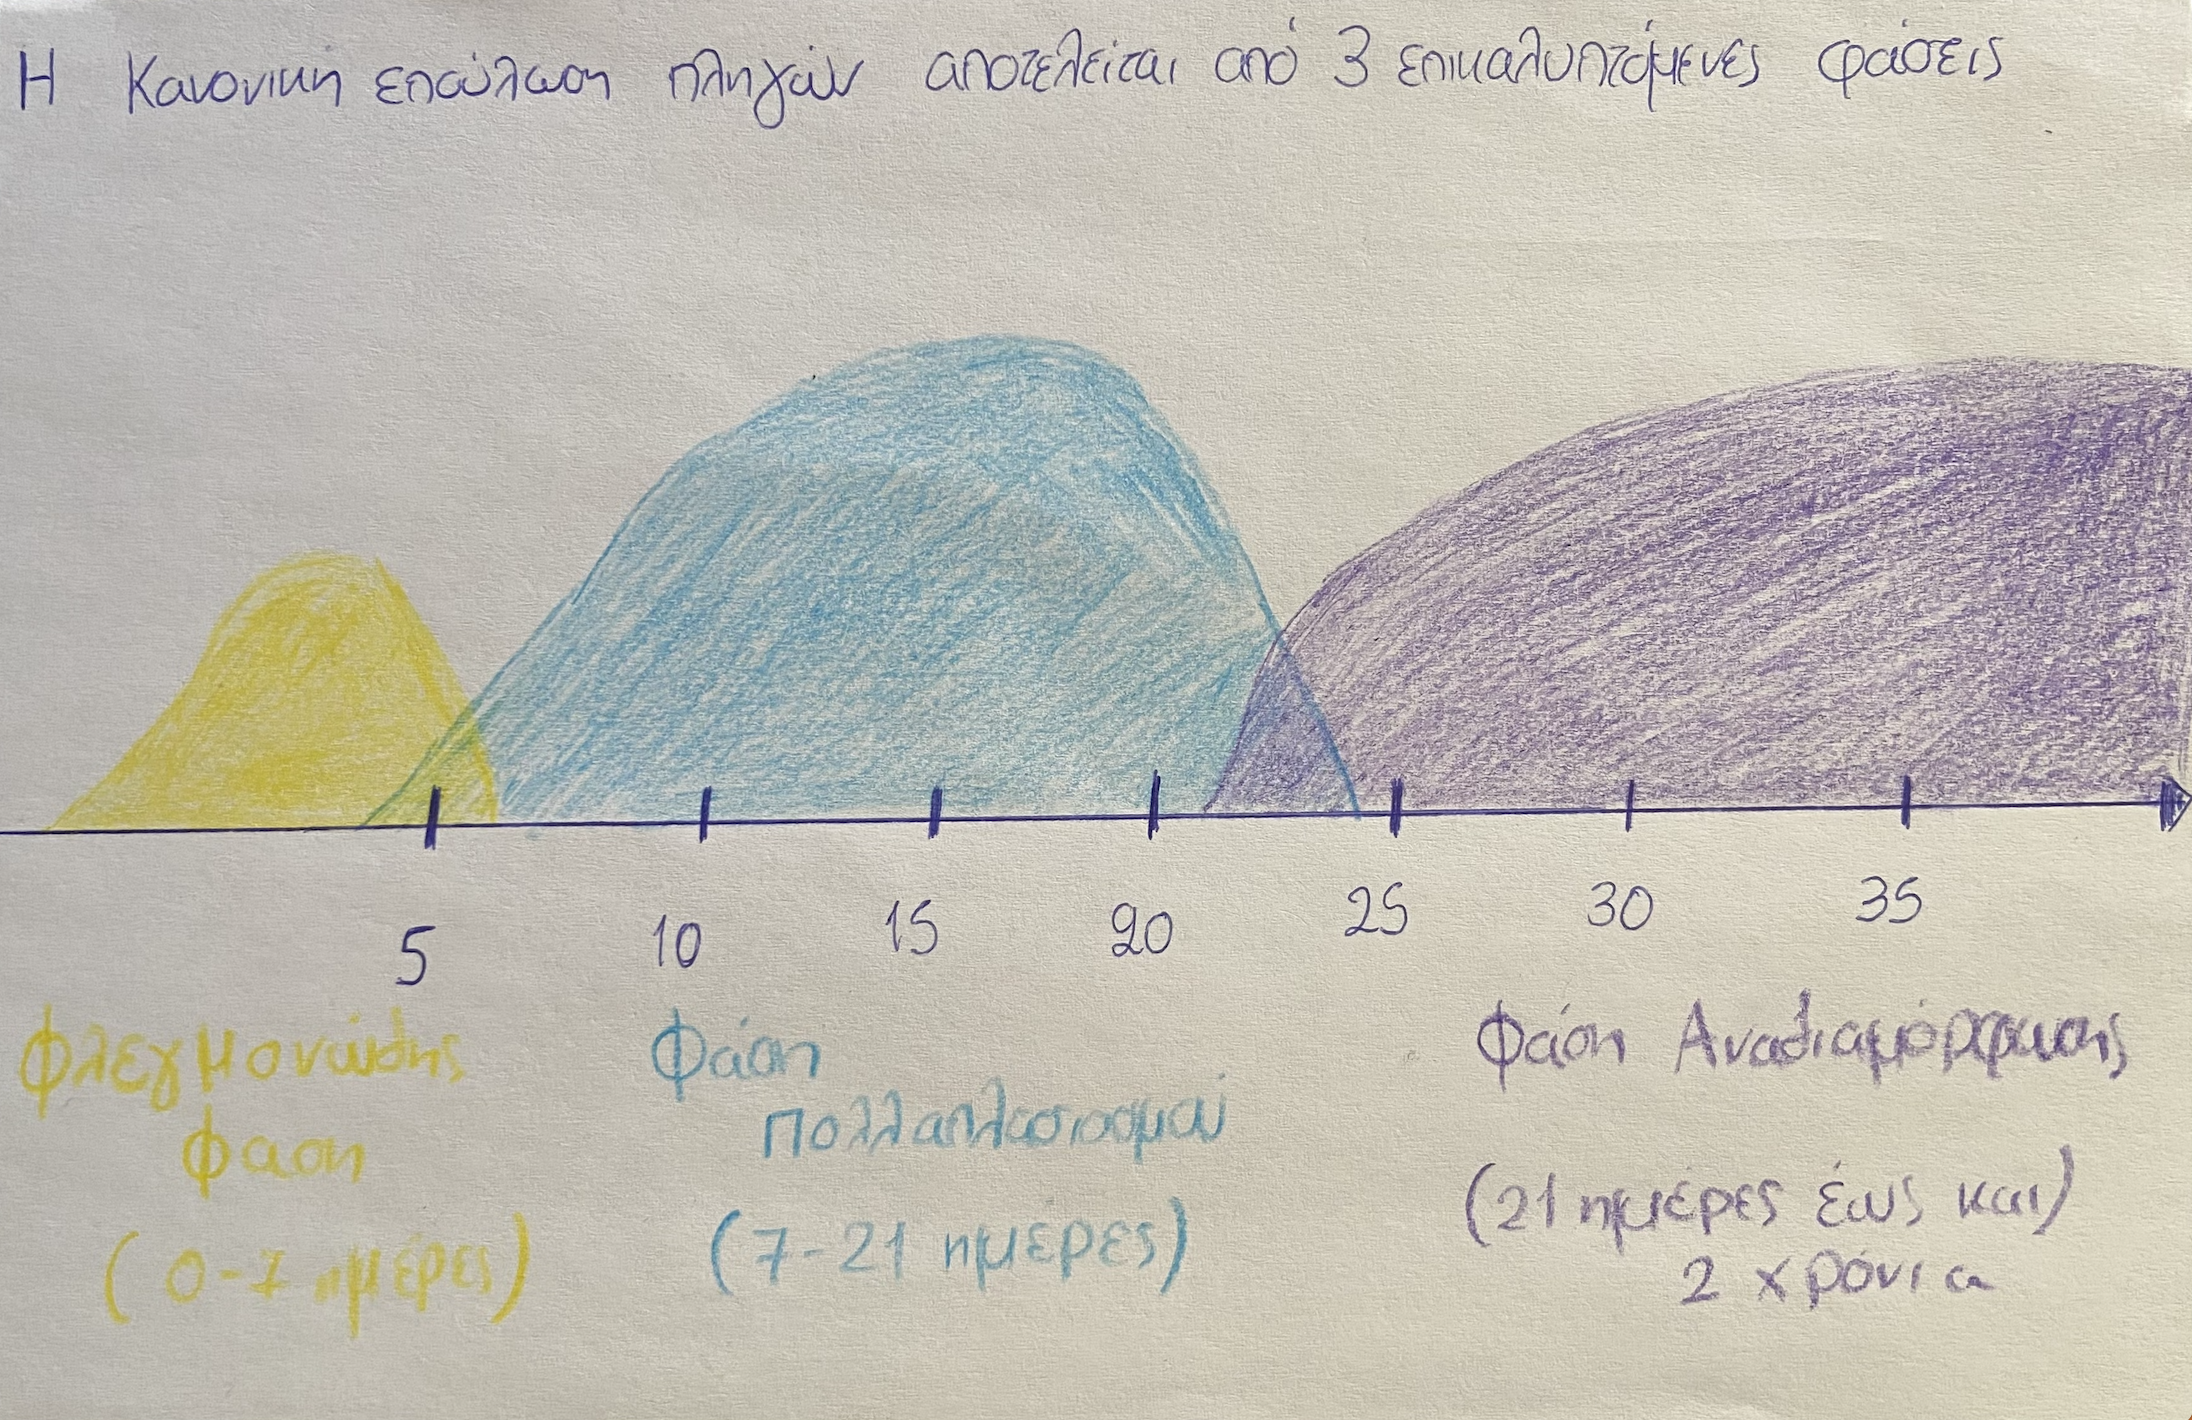 Η Κανονική επούλωση πληγών αποτελείται από 3 επικαλυπτόμενες φάσεις
5 10 15 20 25 30 35
Φλεγμονώδης
φαση
(0-7 ημέρες)
Φάση
πολλαπλασιασμού
(7-21 ημέρες)
Φάση Αναδιαμόρφωσης
(21 ημέρες έως και)
2 χρόνια